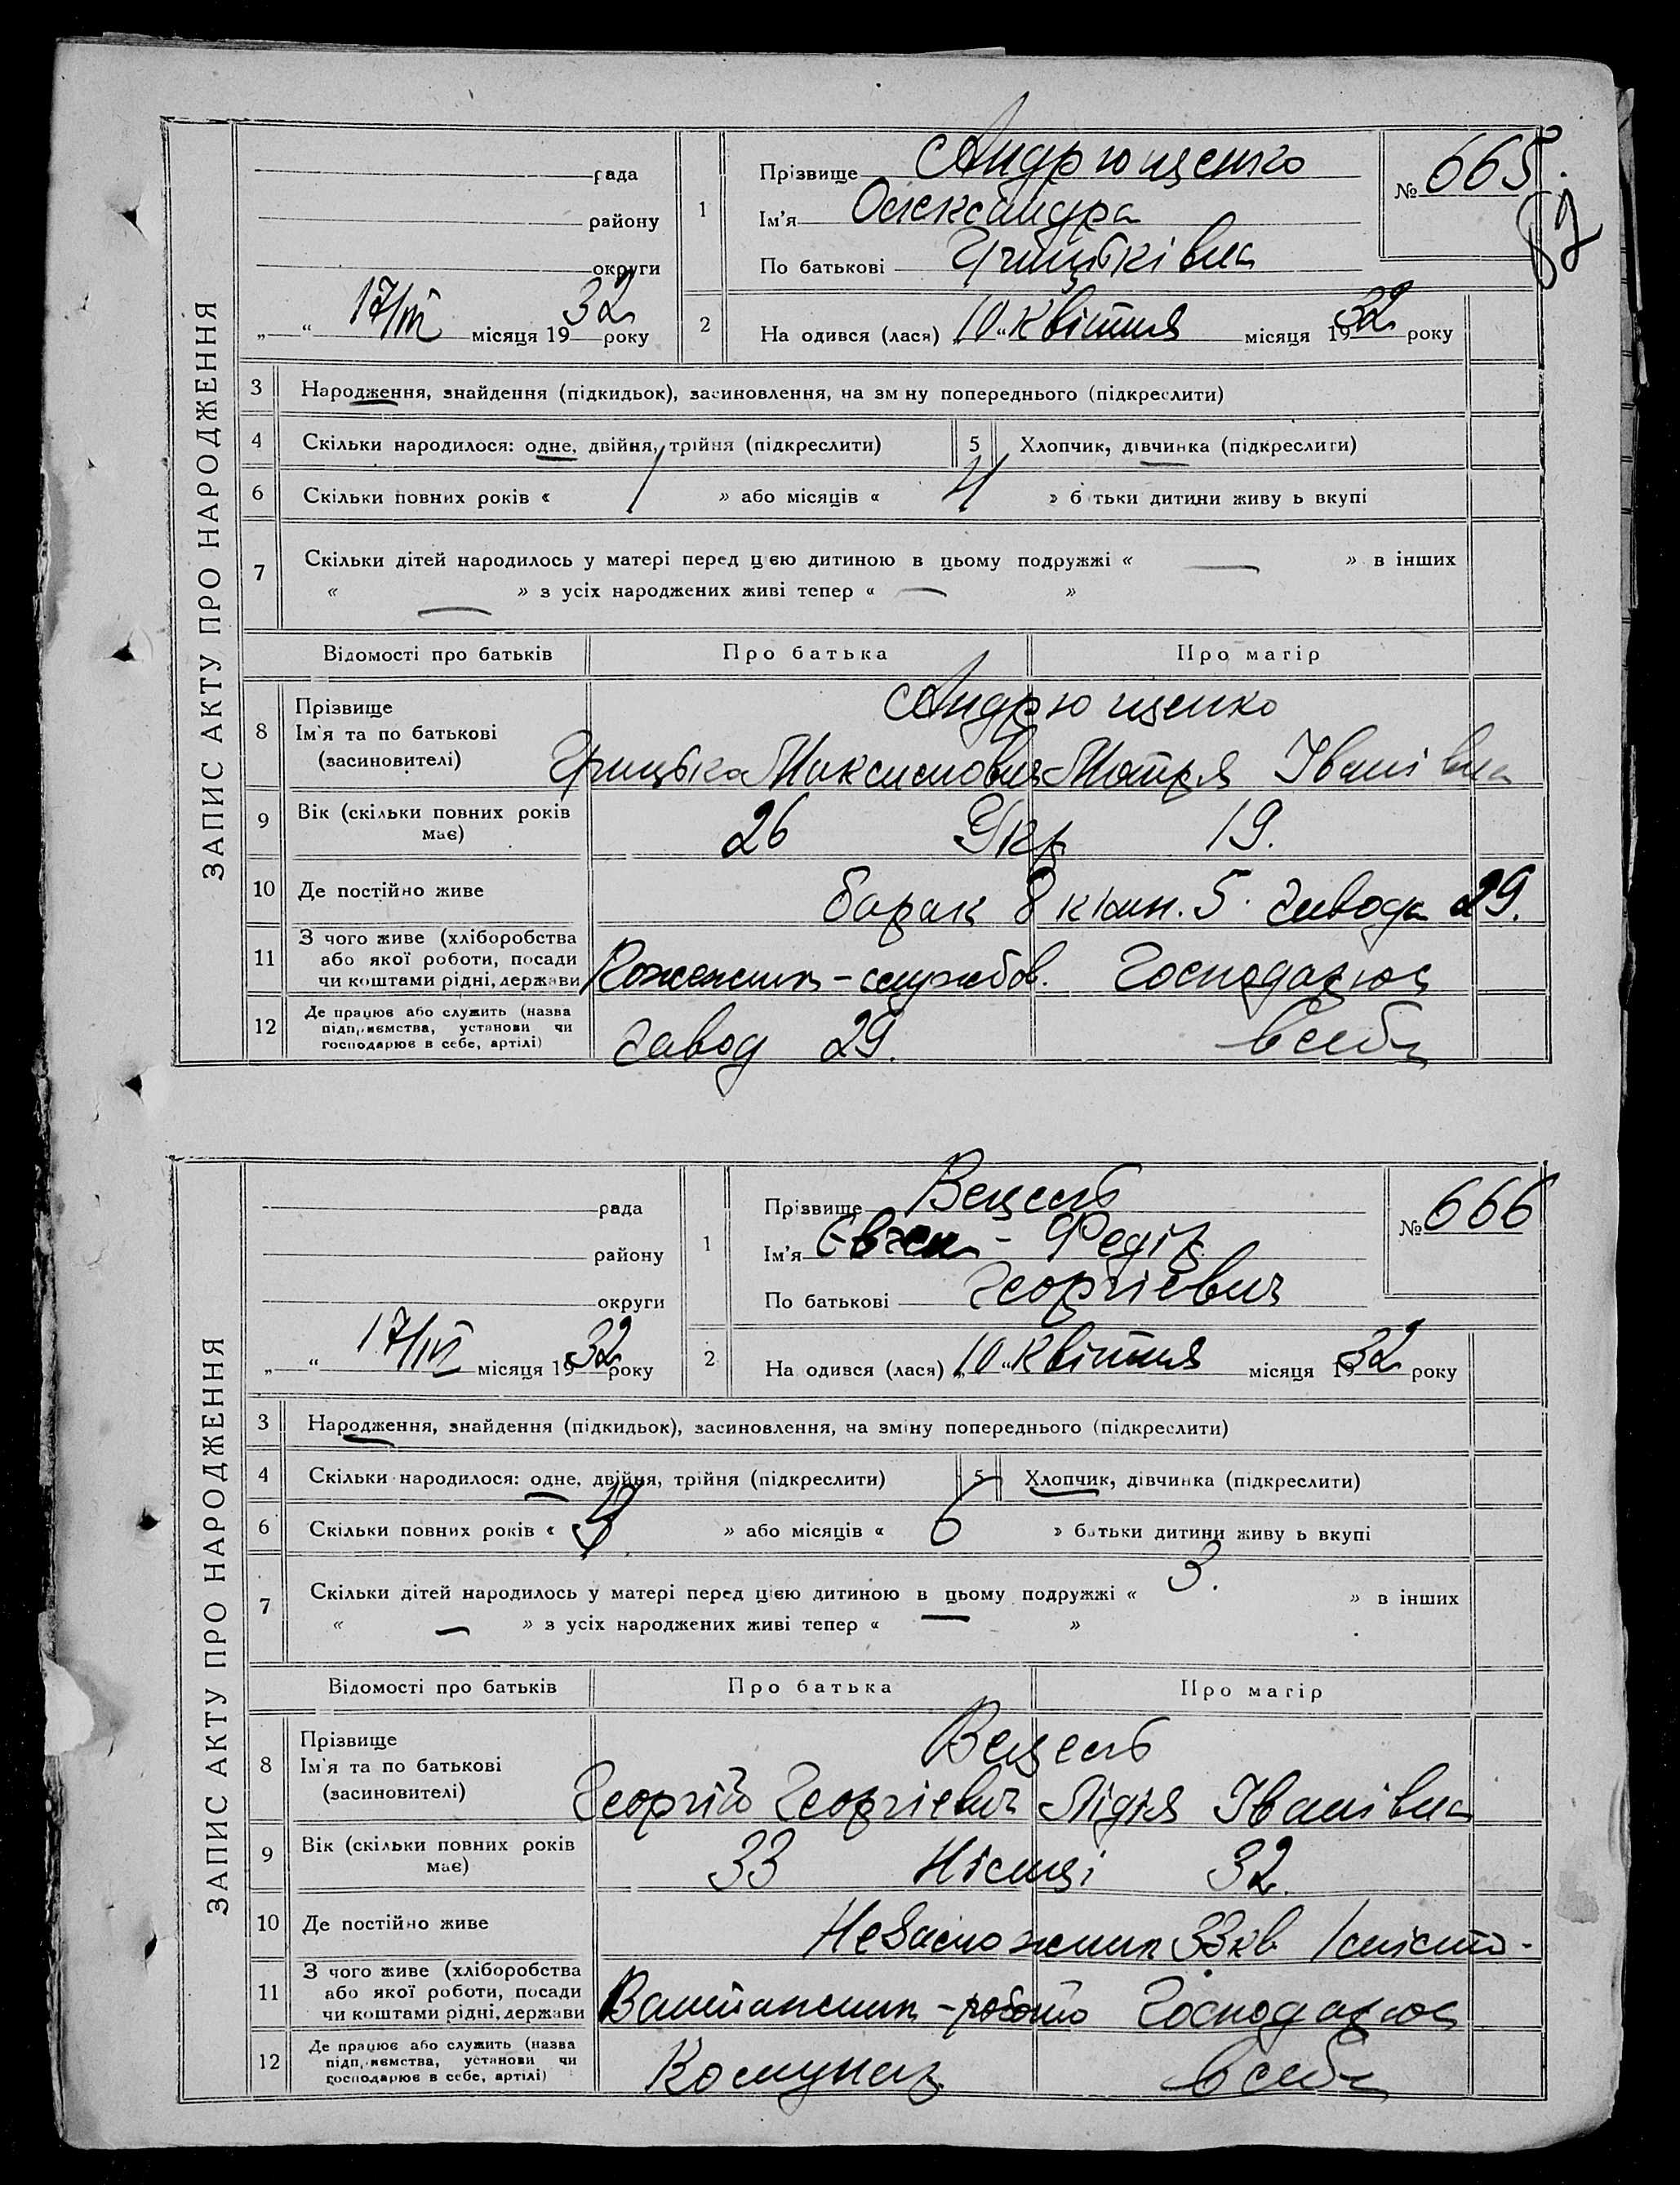 ЗАПИС АКТУ ПРО НАРОДЖЕННЯ
рада
району
округи
17/IV місяця 1932 року
1
Прізвище Андрющенко
Ім'я Олександра
По батькові Грицьківна
№ 665.
87
2
На одився (лася) „10“ квітня місяця 1932 року
3 Народження, знайдення (підкидьок), засиновлення, на зм ну попереднього (підкреслити)
4 Скільки народилося: одне, двійня, трійня (підкреслити) 5 Хлопчик, дівчинка (підкреслити)
6 Скільки повних років « / » або місяців « 4 » б тьки дитини живу ь вкупі
7 Скільки дітей народилось у матері перед цією дитиною в цьому подружжі « — » в інших
« — » з усіх народжених живі тепер « — »
Відомості про батьків Про батька Про матір
8 Прізвище Андрющенко
Ім'я та по батькові
(засиновителі) Грицько Максимович Мотря Іванівна
9 Вік (скільки повних років має) 26 Укр 19.
10 Де постійно живе барак 8 кімн. 5. завода 29.
11 З чого живе (хліборобства
або якої роботи, посади
чи коштами рідні, держави службов. Господарює
12 Де працює або служить (назва
підприємства, установи чи
господарює в себе, артілі) завод 29. в себе
ЗАПИС АКТУ ПРО НАРОДЖЕННЯ
рада
району
округи
17/IV місяця 1932 року
1
Прізвище Вецель
Ім'я Євген - Федір
По батькові Георгієвич
№ 666
2
На одився (лася) „10“ квітня місяця 1932 року
3 Народження, знайдення (підкидьок), засиновлення, на зміну попереднього (підкреслити)
4 Скільки народилося: одне, двійня, трійня (підкреслити) 5 Хлопчик, дівчинка (підкреслити)
6 Скільки повних років « » або місяців « 6 » батьки дитини живу ь вкупі
7 Скільки дітей народилось у матері перед цією дитиною в цьому подружжі « 3. » в інших
« — » з усіх народжених живі тепер « — »
Відомості про батьків Про батька Про матір
8 Прізвище Вецель
Ім'я та по батькові
(засиновителі) Георгій Георгієвич Лідія Іванівна
9 Вік (скільки повних років має) 33 Німці 32.
10 Де постійно живе 33 кв.
11 З чого живе (хліборобства
або якої роботи, посади
чи коштами рідні, держави Господарює
12 Де працює або служить (назва
підприємства, установи чи
господарює в себе, артілі) Комунар в себе